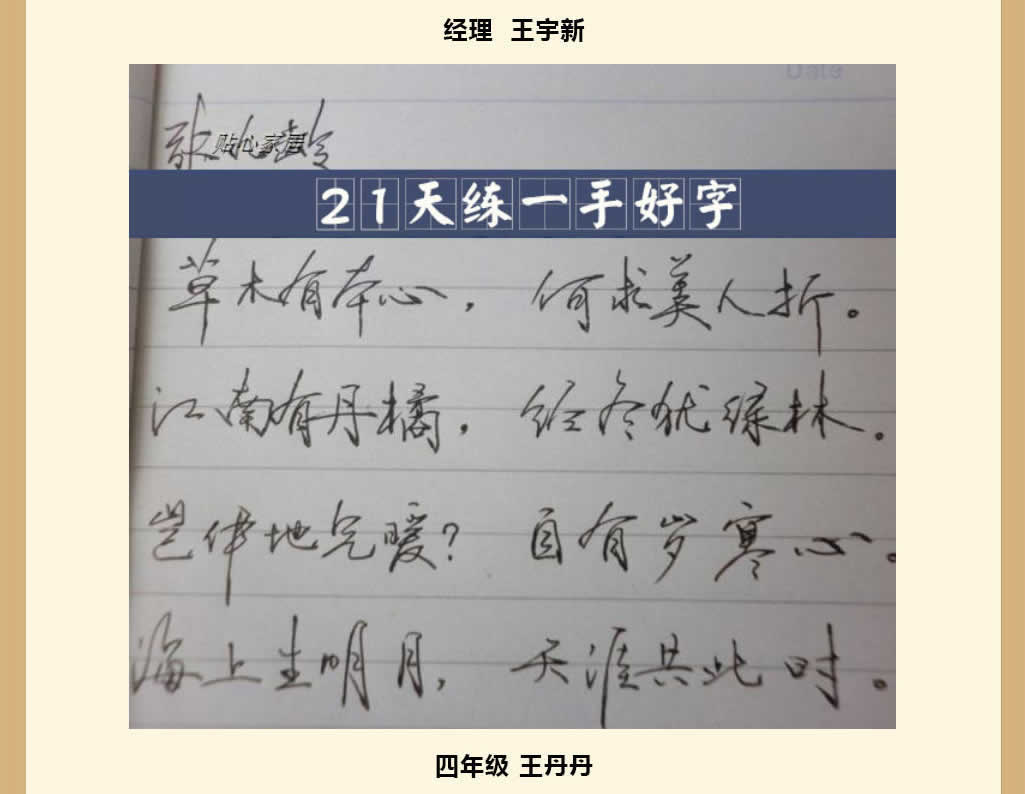 经理 王宇新
Date
张九龄
贴心家居
21天练一手好字
草木有本心，何求美人折。
江南有丹橘，经冬犹绿林。
岂伊地气暖？自有岁寒心。
海上生明月，天涯共此时。
四年级 王丹丹